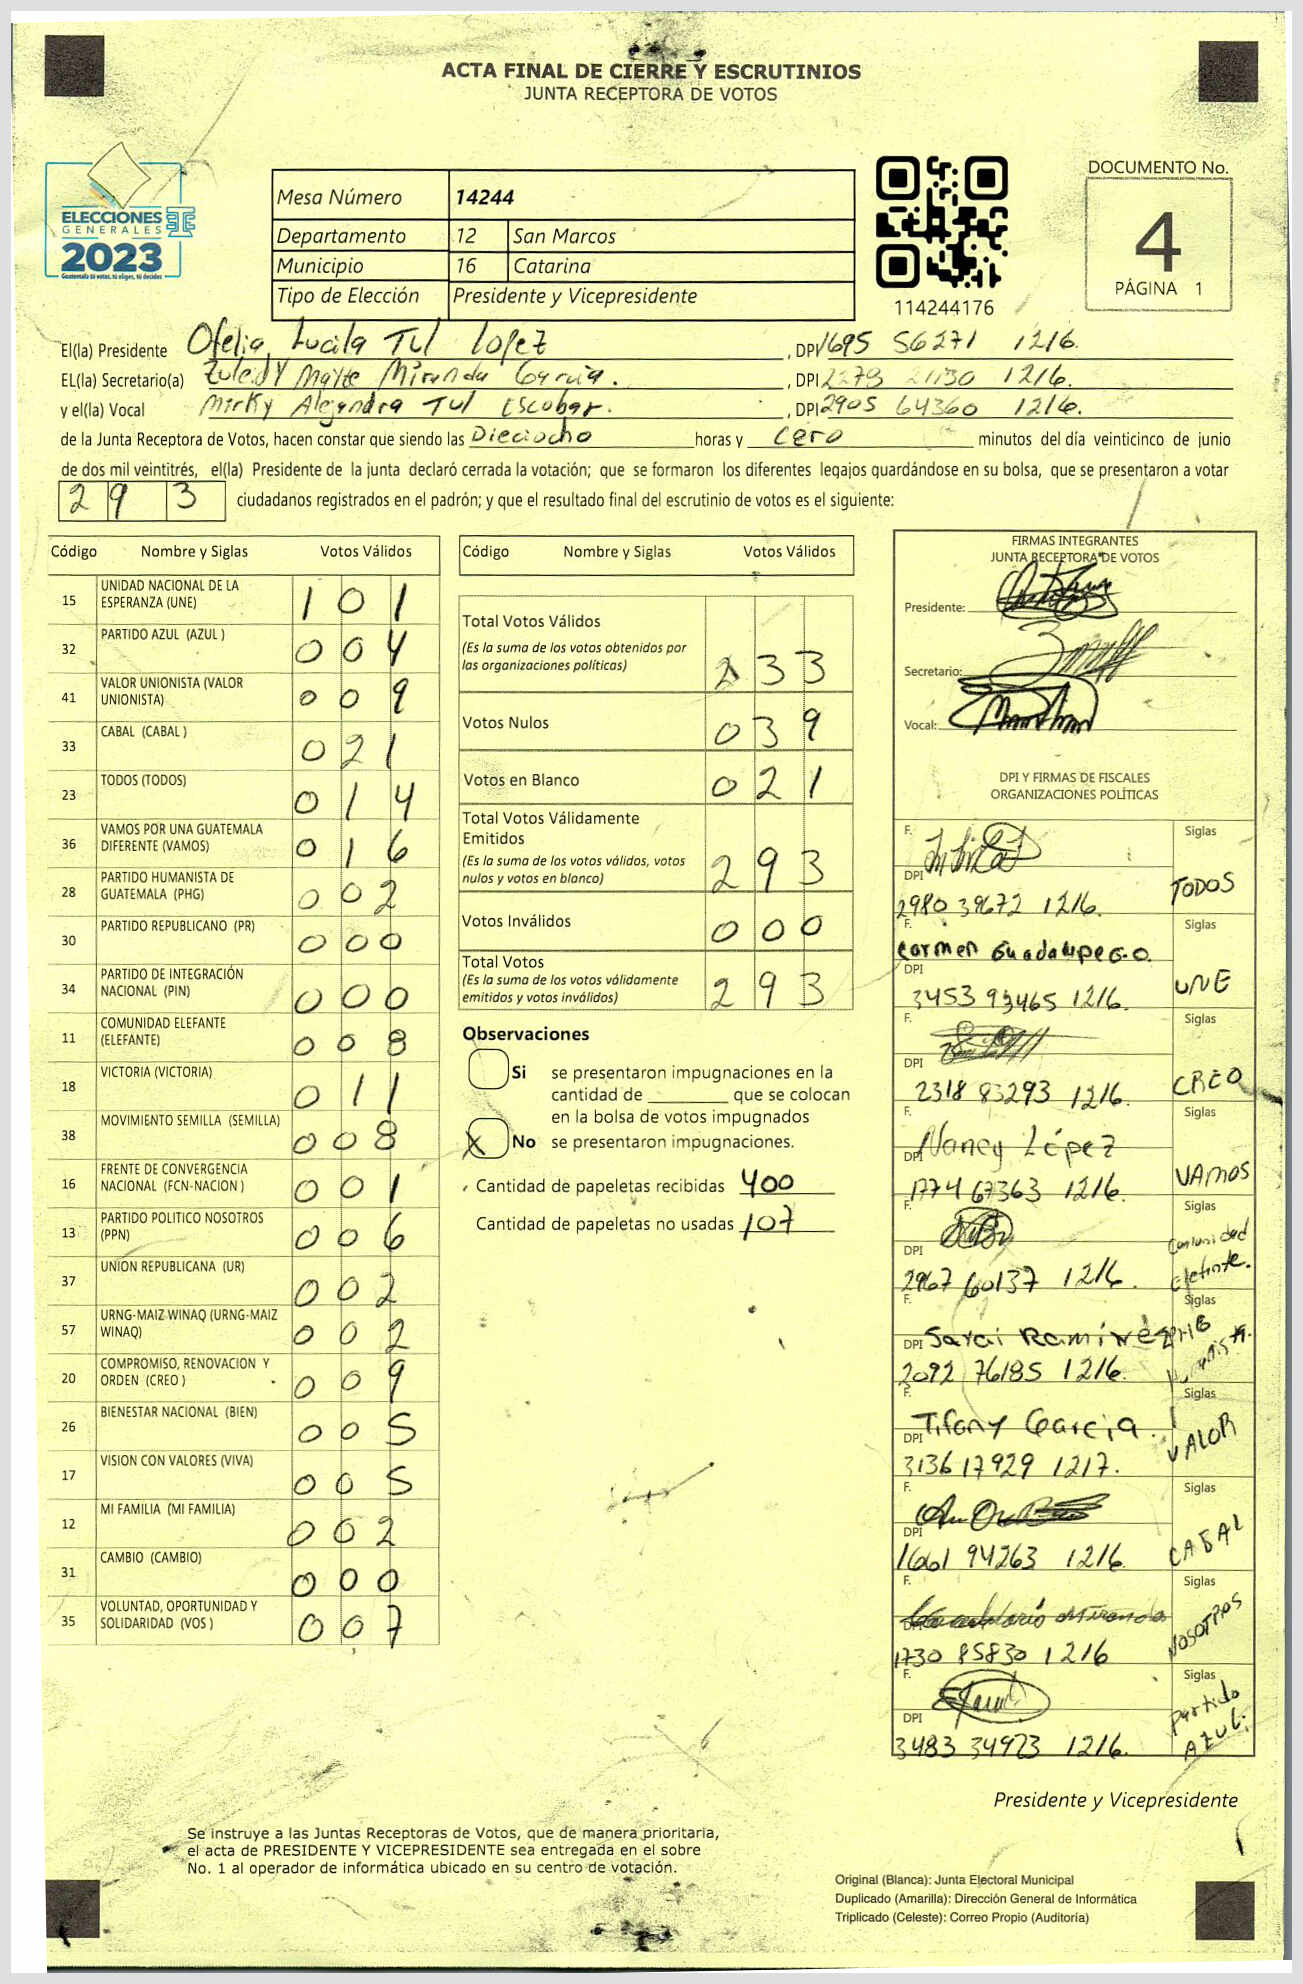 ACTA FINAL DE CIERRE Y ESCRUTINIOS
JUNTA RECEPTORA DE VOTOS
ELECCIONES
GENERALES
2023
Guatemala tú votas, tú eliges, tú decides
Mesa Número 14244
Departamento 12 San Marcos
Municipio 16 Catarina
Tipo de Elección Presidente y Vicepresidente
114244176
DOCUMENTO No.
4
PÁGINA 1
El(la) Presidente Ofelia Lucila Tul Lopez, DPI 1695 56271 1216.
EL(la) Secretario(a) Zuleidy Mayte Miranda Garcia., DPI 2279 21130 1216.
y el(la) Vocal Mirky Alejandra Tul Escobar., DPI 2905 64360 1216.
de la Junta Receptora de Votos, hacen constar que siendo las Dieciocho horas y cero minutos del día veinticinco de junio
de dos mil veintitrés, el(la) Presidente de la junta declaró cerrada la votación; que se formaron los diferentes legajos guardándose en su bolsa, que se presentaron a votar
293 ciudadanos registrados en el padrón; y que el resultado final del escrutinio de votos es el siguiente:
Código Nombre y Siglas Votos Válidos
15 UNIDAD NACIONAL DE LA ESPERANZA (UNE) 101
32 PARTIDO AZUL (AZUL ) 004
41 VALOR UNIONISTA (VALOR UNIONISTA) 009
33 CABAL (CABAL ) 021
23 TODOS (TODOS) 014
36 VAMOS POR UNA GUATEMALA DIFERENTE (VAMOS) 016
28 PARTIDO HUMANISTA DE GUATEMALA (PHG) 002
30 PARTIDO REPUBLICANO (PR) 000
34 PARTIDO DE INTEGRACIÓN NACIONAL (PIN) 000
11 COMUNIDAD ELEFANTE (ELEFANTE) 008
18 VICTORIA (VICTORIA) 011
38 MOVIMIENTO SEMILLA (SEMILLA) 008
16 FRENTE DE CONVERGENCIA NACIONAL (FCN-NACION ) 001
13 PARTIDO POLITICO NOSOTROS (PPN) 006
37 UNION REPUBLICANA (UR) 002
57 URNG-MAIZ WINAQ (URNG-MAIZ WINAQ) 002
20 COMPROMISO, RENOVACION Y ORDEN (CREO ) 009
26 BIENESTAR NACIONAL (BIEN) 005
17 VISION CON VALORES (VIVA) 005
12 MI FAMILIA (MI FAMILIA) 002
31 CAMBIO (CAMBIO) 000
35 VOLUNTAD, OPORTUNIDAD Y SOLIDARIDAD (VOS ) 007
Código Nombre y Siglas Votos Válidos
Total Votos Válidos
(Es la suma de los votos obtenidos por
las organizaciones políticas) 233
Votos Nulos 039
Votos en Blanco 021
Total Votos Válidamente
Emitidos
(Es la suma de los votos válidos, votos
nulos y votos en blanco) 293
Votos Inválidos 000
Total Votos
(Es la suma de los votos válidamente
emitidos y votos inválidos) 293
Observaciones
Si se presentaron impugnaciones en la
cantidad de ________ que se colocan
en la bolsa de votos impugnados
X No se presentaron impugnaciones.
Cantidad de papeletas recibidas 400
Cantidad de papeletas no usadas 107
FIRMAS INTEGRANTES
JUNTA RECEPTORA DE VOTOS
Presidente:
Secretario:
Vocal:
DPI Y FIRMAS DE FISCALES
ORGANIZACIONES POLÍTICAS
F. Siglas
DPI TODOS
2980 39672 1216.
F. Siglas
Carmen Guadalupe G.O.
DPI UNE
3453 93465 1216.
F. Siglas
DPI CREO
2318 83293 1216.
F. Siglas
Nancy López
DPI VAMOS
1774 67363 1216.
F. Siglas
DPI Comunidad Elefante.
2967 60137 1216.
F. Siglas
DPI Sarai Ramírez PHG
2092 76185 1216.
F. Siglas
Tifany Garcia.
DPI VALOR
3136 17929 1217.
F. Siglas
DPI CABAL
1661 94263 1216.
F. Siglas
Miranda
DPI NOSOTROS
1730 85830 1216
F. Siglas
DPI Partido AZUL.
3483 34923 1216.
Presidente y Vicepresidente
Se instruye a las Juntas Receptoras de Votos, que de manera prioritaria,
el acta de PRESIDENTE Y VICEPRESIDENTE sea entregada en el sobre
No. 1 al operador de informática ubicado en su centro de votación.
Original (Blanca): Junta Electoral Municipal
Duplicado (Amarilla): Dirección General de Informática
Triplicado (Celeste): Correo Propio (Auditoría)